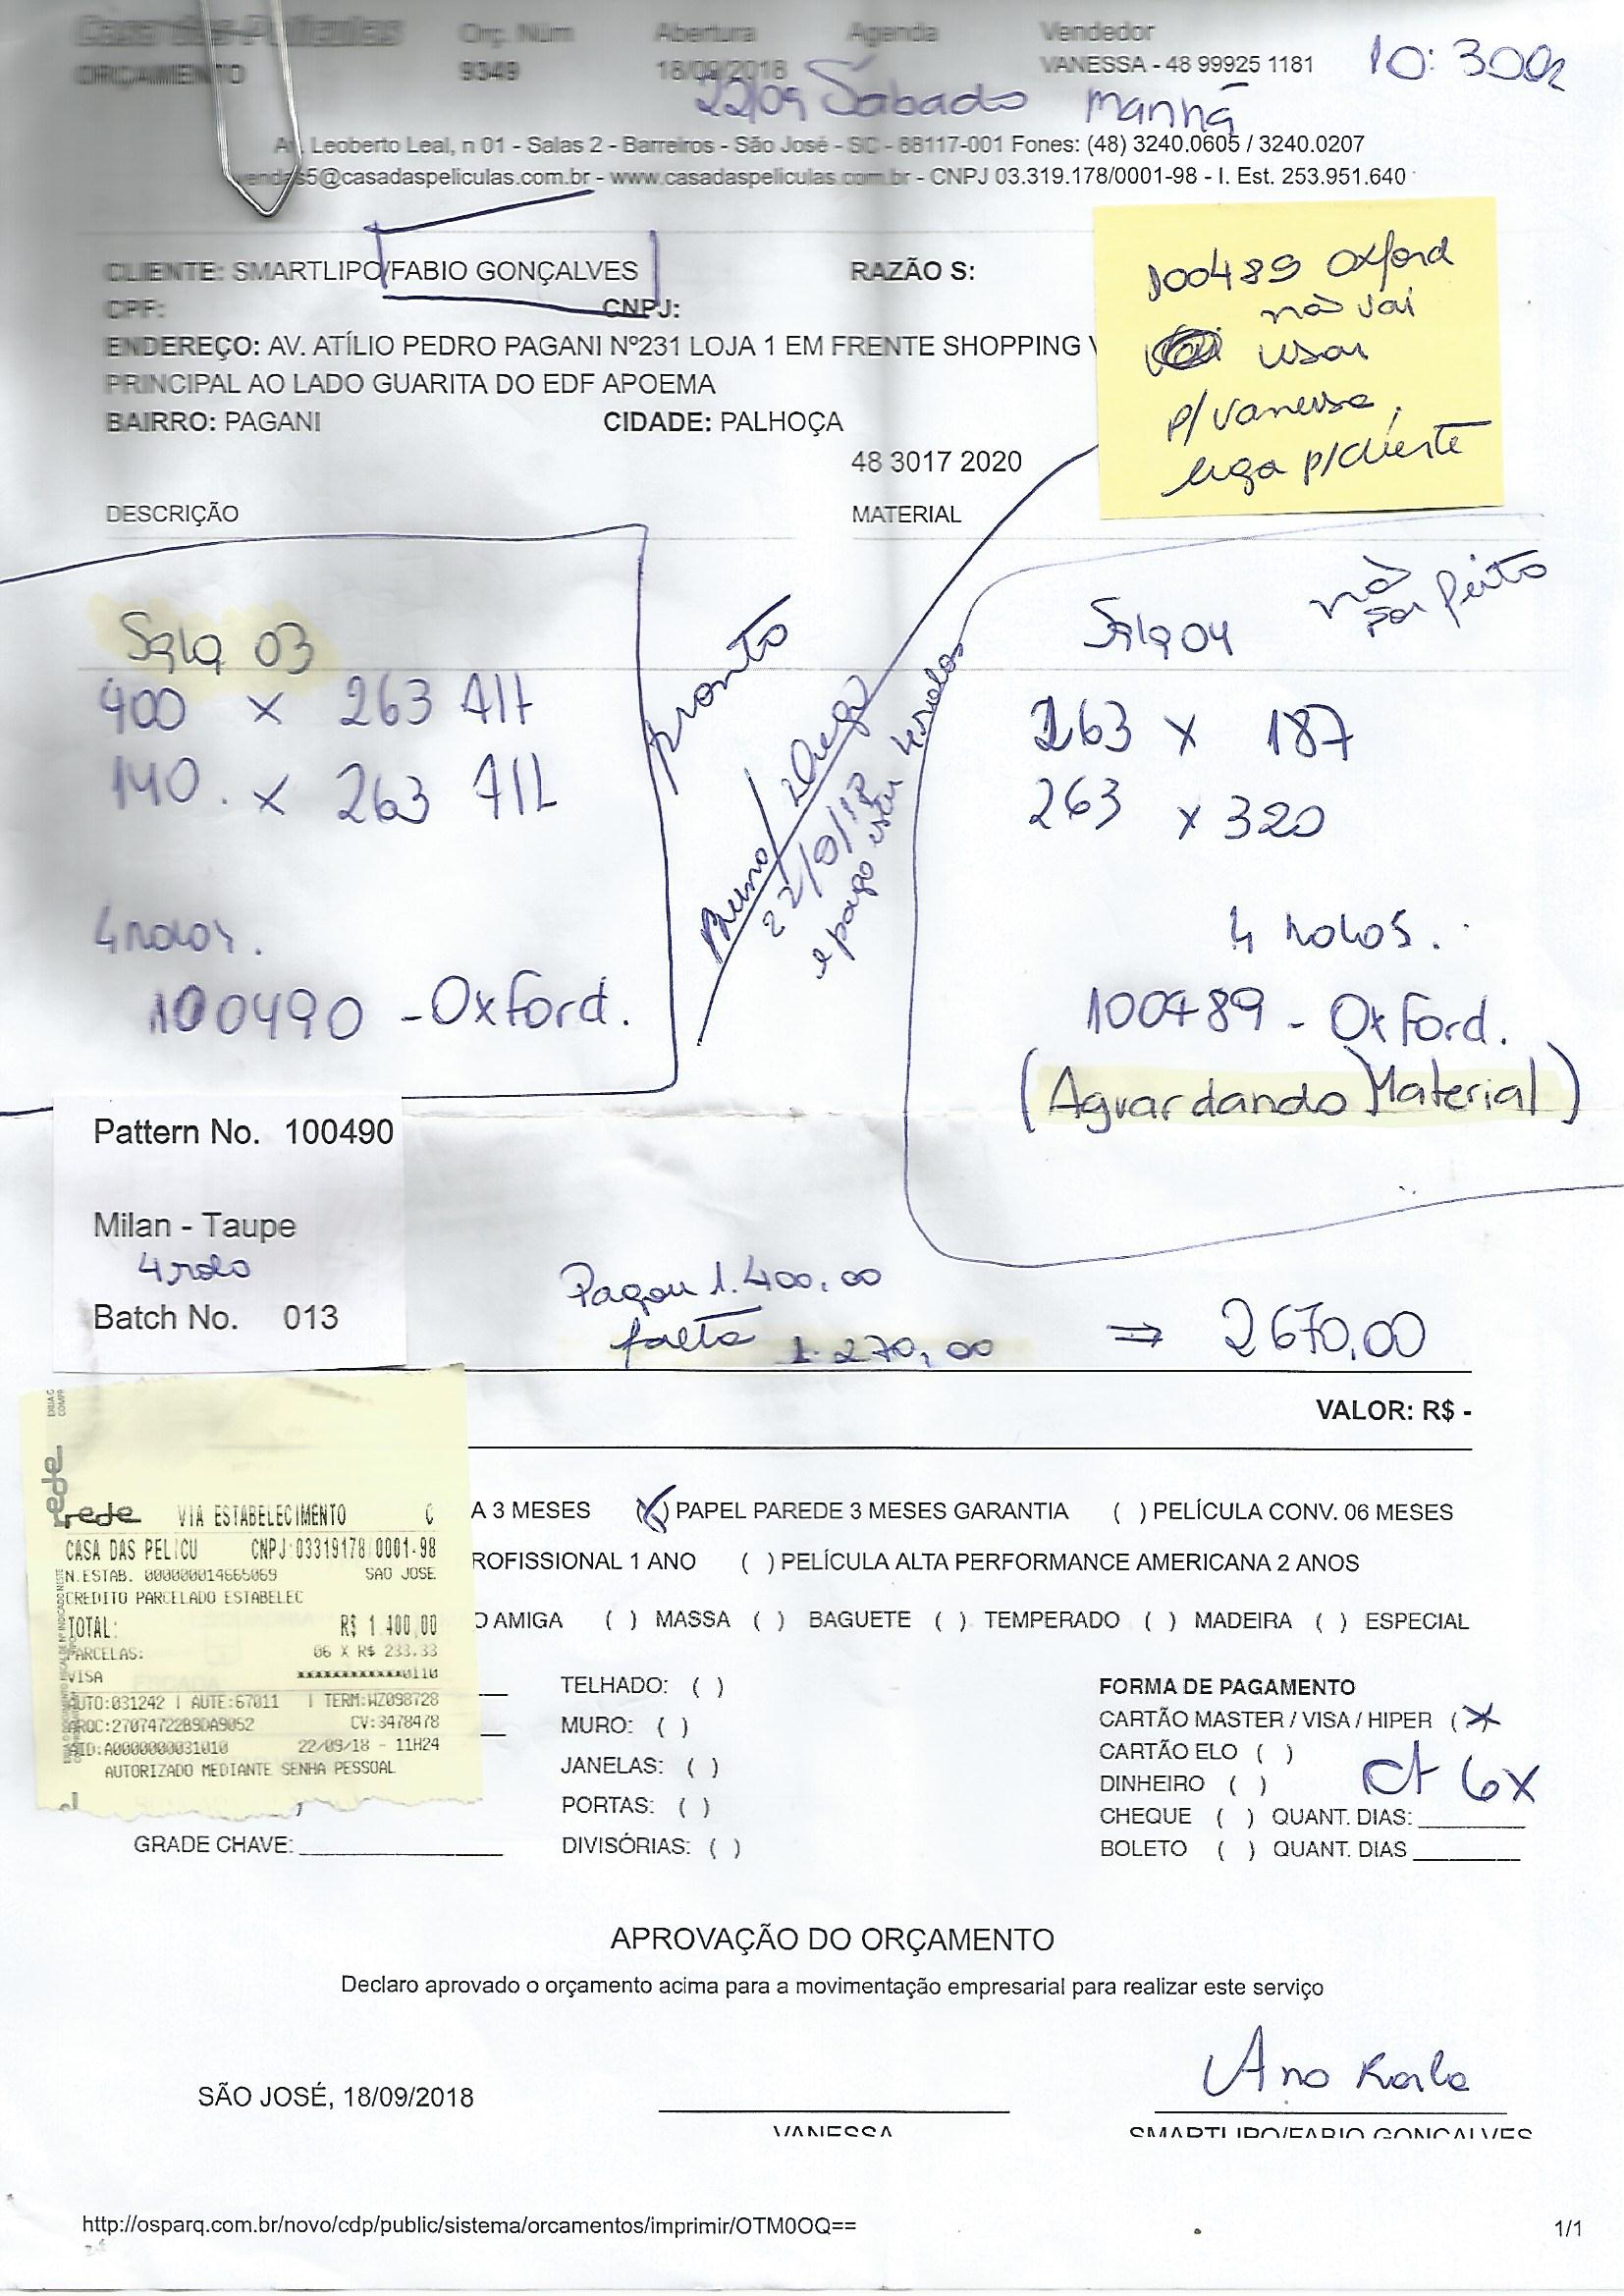 Casa das Películas Orç. Núm Abertura Agenda Vendedor
ORÇAMENTO 9349 18/09/2018 VANESSA - 48 99925 1181 10:30
22/09 Sábado Manhã
Av. Leoberto Leal, n 01 - Salas 2 - Barreiros - São José - SC - 88117-001 Fones: (48) 3240.0605 / 3240.0207
vendas5@casadaspeliculas.com.br - www.casadaspeliculas.com.br - CNPJ 03.319.178/0001-98 - I. Est. 253.951.640
CLIENTE: SMARTLIPO/FABIO GONÇALVES RAZÃO S:
CPF: CNPJ:
ENDEREÇO: AV. ATÍLIO PEDRO PAGANI Nº231 LOJA 1 EM FRENTE SHOPPING V
PRINCIPAL AO LADO GUARITA DO EDF APOEMA
BAIRRO: PAGANI CIDADE: PALHOÇA
48 3017 2020
100489 Oxford
não vai
usar
p/ Vanessa,
liga p/ cliente
DESCRIÇÃO MATERIAL
Sala 03
400 x 263 Alt
140. x 263 Alt
4 rolos.
100490 - Oxford.
pronto
Bruno
22/10/18
e pago 4 rolos
Sala 04
não foi feito
263 x 187
263 x 320
4 rolos.
100489 - Oxford.
(Aguardando Material)
Pattern No. 100490
Milan - Taupe
4 rolo
Batch No. 013
Pagou 1.400,00
falta 1.270,00 ⇒ 2670,00
VALOR: R$ -
rede VIA ESTABELECIMENTO C
CASA DAS PELICU CNPJ:03319178/0001-98
N.ESTAB. 000000014665069 SAO JOSE
CREDITO PARCELADO ESTABELEC
TOTAL: R$ 1.400,00
PARCELAS: 06 X R$ 233,33
VISA ************0110
AUTO:031242 | AUTE:67011 | TERM:WZ098728
ARQC:27074722B9DA9052 CV:3478478
AID:A0000000031010 22/09/18 - 11H24
AUTORIZADO MEDIANTE SENHA PESSOAL
A 3 MESES (X) PAPEL PAREDE 3 MESES GARANTIA ( ) PELÍCULA CONV. 06 MESES
ROFISSIONAL 1 ANO ( ) PELÍCULA ALTA PERFORMANCE AMERICANA 2 ANOS
O AMIGA ( ) MASSA ( ) BAGUETE ( ) TEMPERADO ( ) MADEIRA ( ) ESPECIAL
TELHADO: ( )
MURO: ( )
JANELAS: ( )
PORTAS: ( )
DIVISÓRIAS: ( )
GRADE CHAVE:
FORMA DE PAGAMENTO
CARTÃO MASTER / VISA / HIPER (X
CARTÃO ELO ( )
DINHEIRO ( )
ct 6x
CHEQUE ( ) QUANT. DIAS:
BOLETO ( ) QUANT. DIAS
APROVAÇÃO DO ORÇAMENTO
Declaro aprovado o orçamento acima para a movimentação empresarial para realizar este serviço
Ana Karla
SÃO JOSÉ, 18/09/2018
VANESSA SMARTLIPO/FABIO GONÇALVES
http://osparq.com.br/novo/cdp/public/sistema/orcamentos/imprimir/OTM0OQ== 1/1